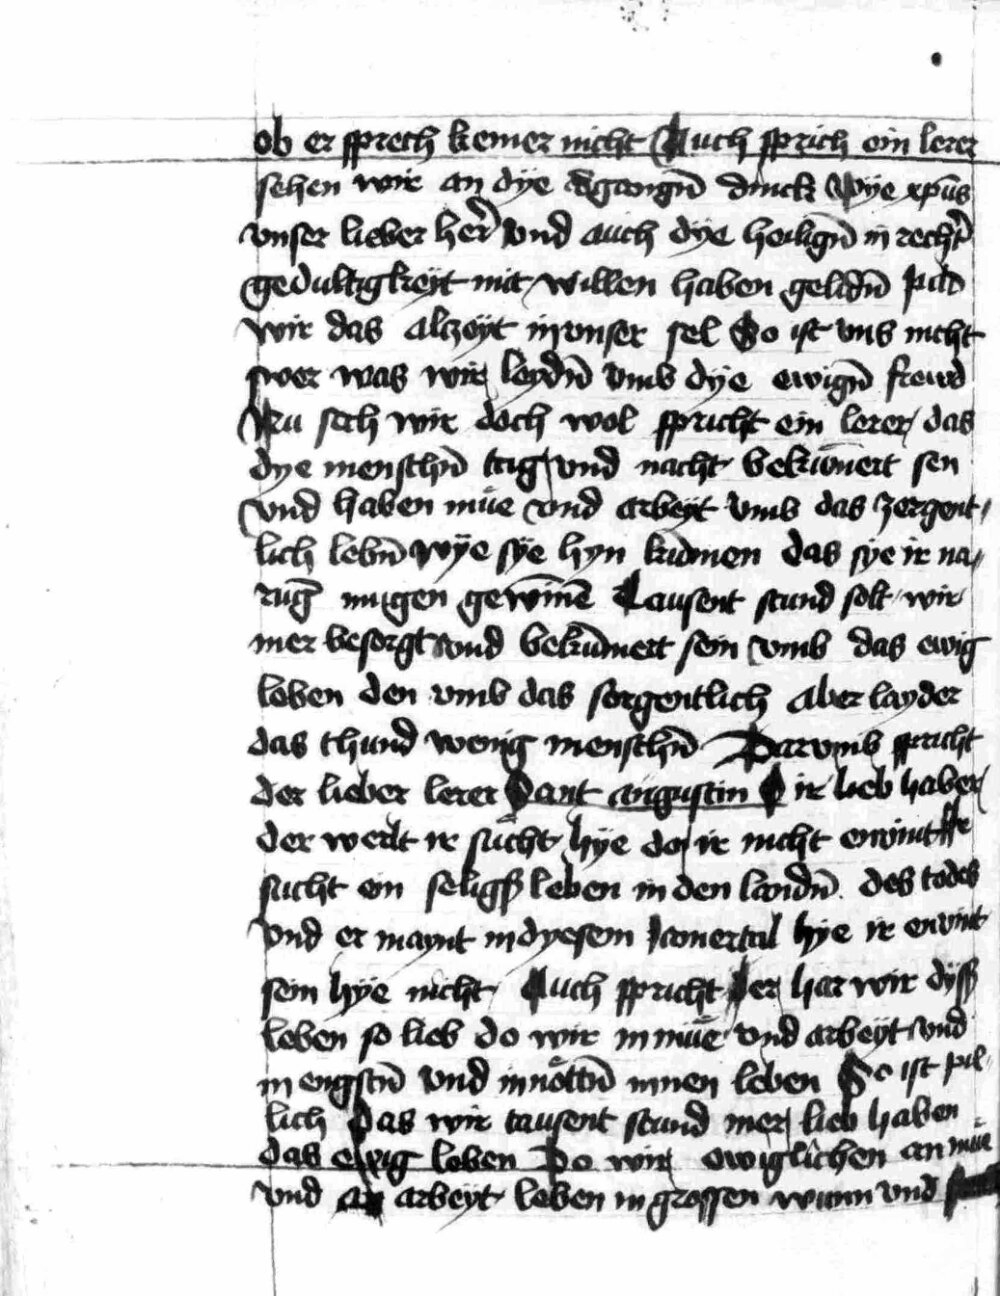 ob er sprech kemer nicht Auch sprich ein lerer
sehen wir an dye dinck Wye xpūs
vnser lieber her̄ vnd auch dye heilign̄ in recht̄
gedultigkeÿt mit willen haben gelidn̄ pild
wir das alczeÿt in vnser sel So ist vns nicht
swer was wir leydn̄ vmb dye ewign̄ freud
Nu seh wir doch wol spricht ein lerer das
dye menschn̄ tag vnd nacht bekūmert sen
vnd haben mue vnd arbeyt vmb das zergent
lich lebn̄ wÿe sÿe hyn kūmen das sye ir na
rūg mugen gewīnē Tausent stund solt wir
mer besorgt vnd bekūmert sein vmb das ewig
leben den vmb das sorgentlich Aber layder
das thund wenig menschn̄ Darvmb spricht
der lieber lerer Sant augustin O ir lieb haber
der werlt ir sucht hye do ir nicht envint
sucht ein seligs leben in den landn̄ des todes
vnd er maynt in dyesem Iamertal hye ir envint
sein hÿe nicht Auch spricht er har wir dyss
leben so lieb do wir in mue vnd arbeÿt vnd
in engstn̄ vnd in nottn̄ innen leben So ist pil
lich Das wir tausent stund mer lieb haben
das ewig leben Do wir ewiglichen an mue
vnd an arbeyt leben in grossen wunn vnd